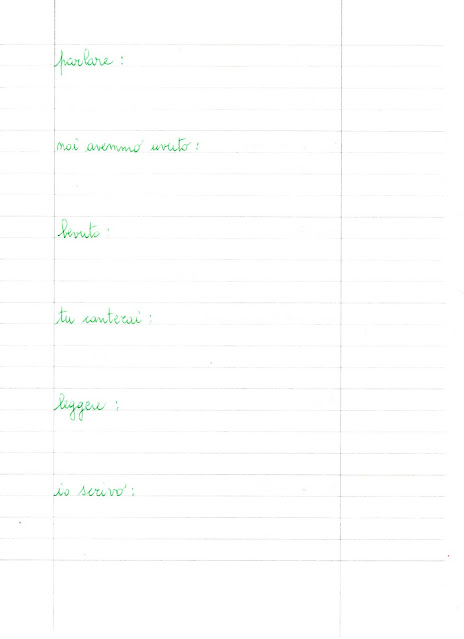 parlare :
noi avemmo avuto :
bevuto :
tu canterai :
leggere :
io scrivo :